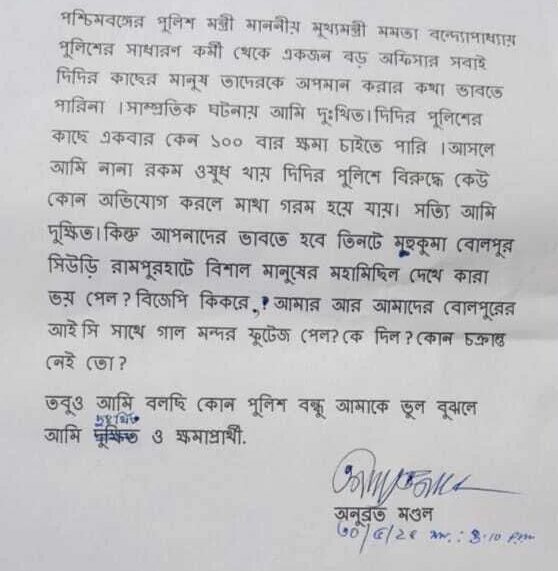 পশ্চিমবঙ্গের পুলিশ মন্ত্রী মাননীয় মুখ্যমন্ত্রী মমতা বন্দ্যোপাধ্যায়
পুলিশের সাধারণ কর্মী থেকে একজন বড় অফিসার সবাই
দিদির কাছের মানুষ তাদেরকে অপমান করার কথা ভাবতে
পারিনা । সাম্প্রতিক ঘটনায় আমি দুঃখিত। দিদির পুলিশের
কাছে একবার কেন ১০০ বার ক্ষমা চাইতে পারি । আসলে
আমি নানা রকম ওষুধ খায় দিদির পুলিশে বিরুদ্ধে কেউ
কোন অভিযোগ করলে মাথা গরম হয়ে যায়। সত্যি আমি
দুক্ষিত। কিন্তু আপনাদের ভাবতে হবে তিনটে মহুকুমা বোলপুর
সিউড়ি রামপুরহাটে বিশাল মানুষের মহামিছিল দেখে কারা
ভয় পেল ? বিজেপি কিকরে, ? আমার আর আমাদের বোলপুরের
আই সি সাথে গাল মন্দর ফুটেজ পেল? কে দিল ? কোন চক্রান্ত
নেই তো ?
তবুও আমি বলছি কোন পুলিশ বন্ধু আমাকে ভুল বুঝলে
দুঃখিত
আমি দুক্ষিত ও ক্ষমাপ্রার্থী.
অনুব্রত মণ্ডল
৩০/৫/২৫